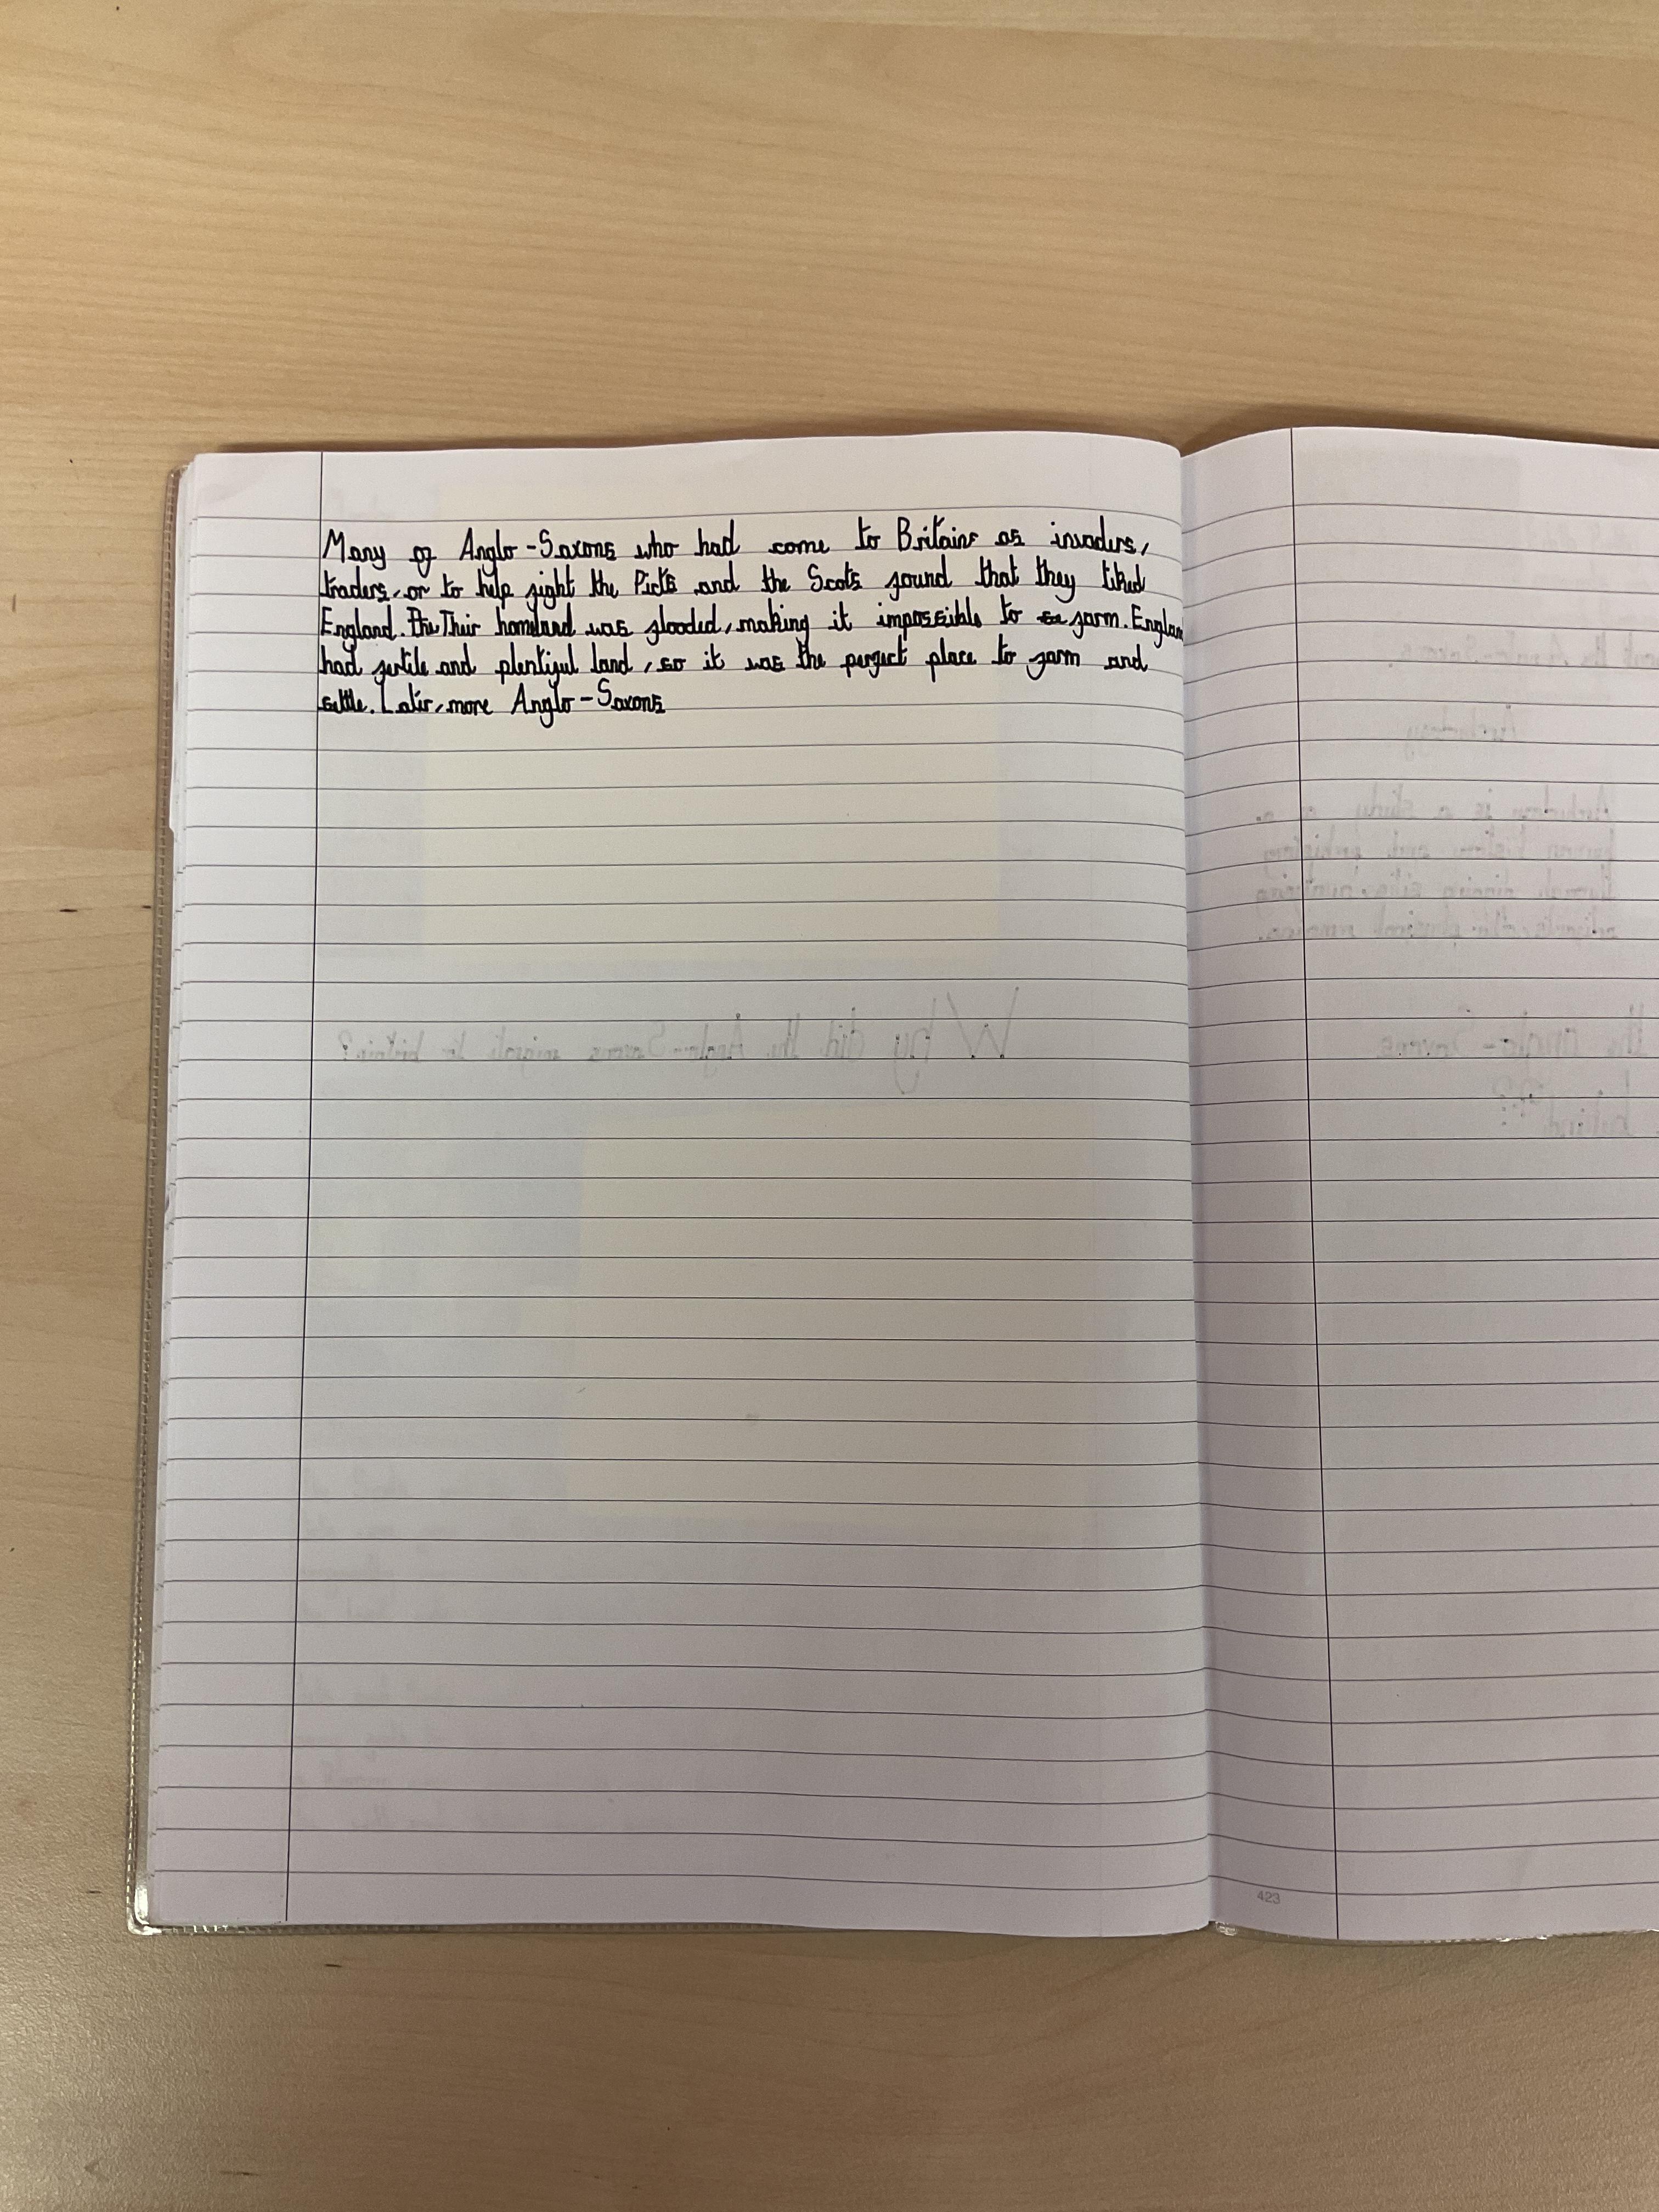 Many of Anglo-Saxons who had come to Britain as invaders,
traders, or to help fight the Picts and the Scots found that they liked
England. Their homeland was flooded, making it impossible to farm. Englan
had fertile and plentiful land, so it was the perfect place to farm and
settle. Later, more Anglo-Saxons
Why did the Anglo-Saxons migrate to britain?
the anglo-Saxons
behind
423